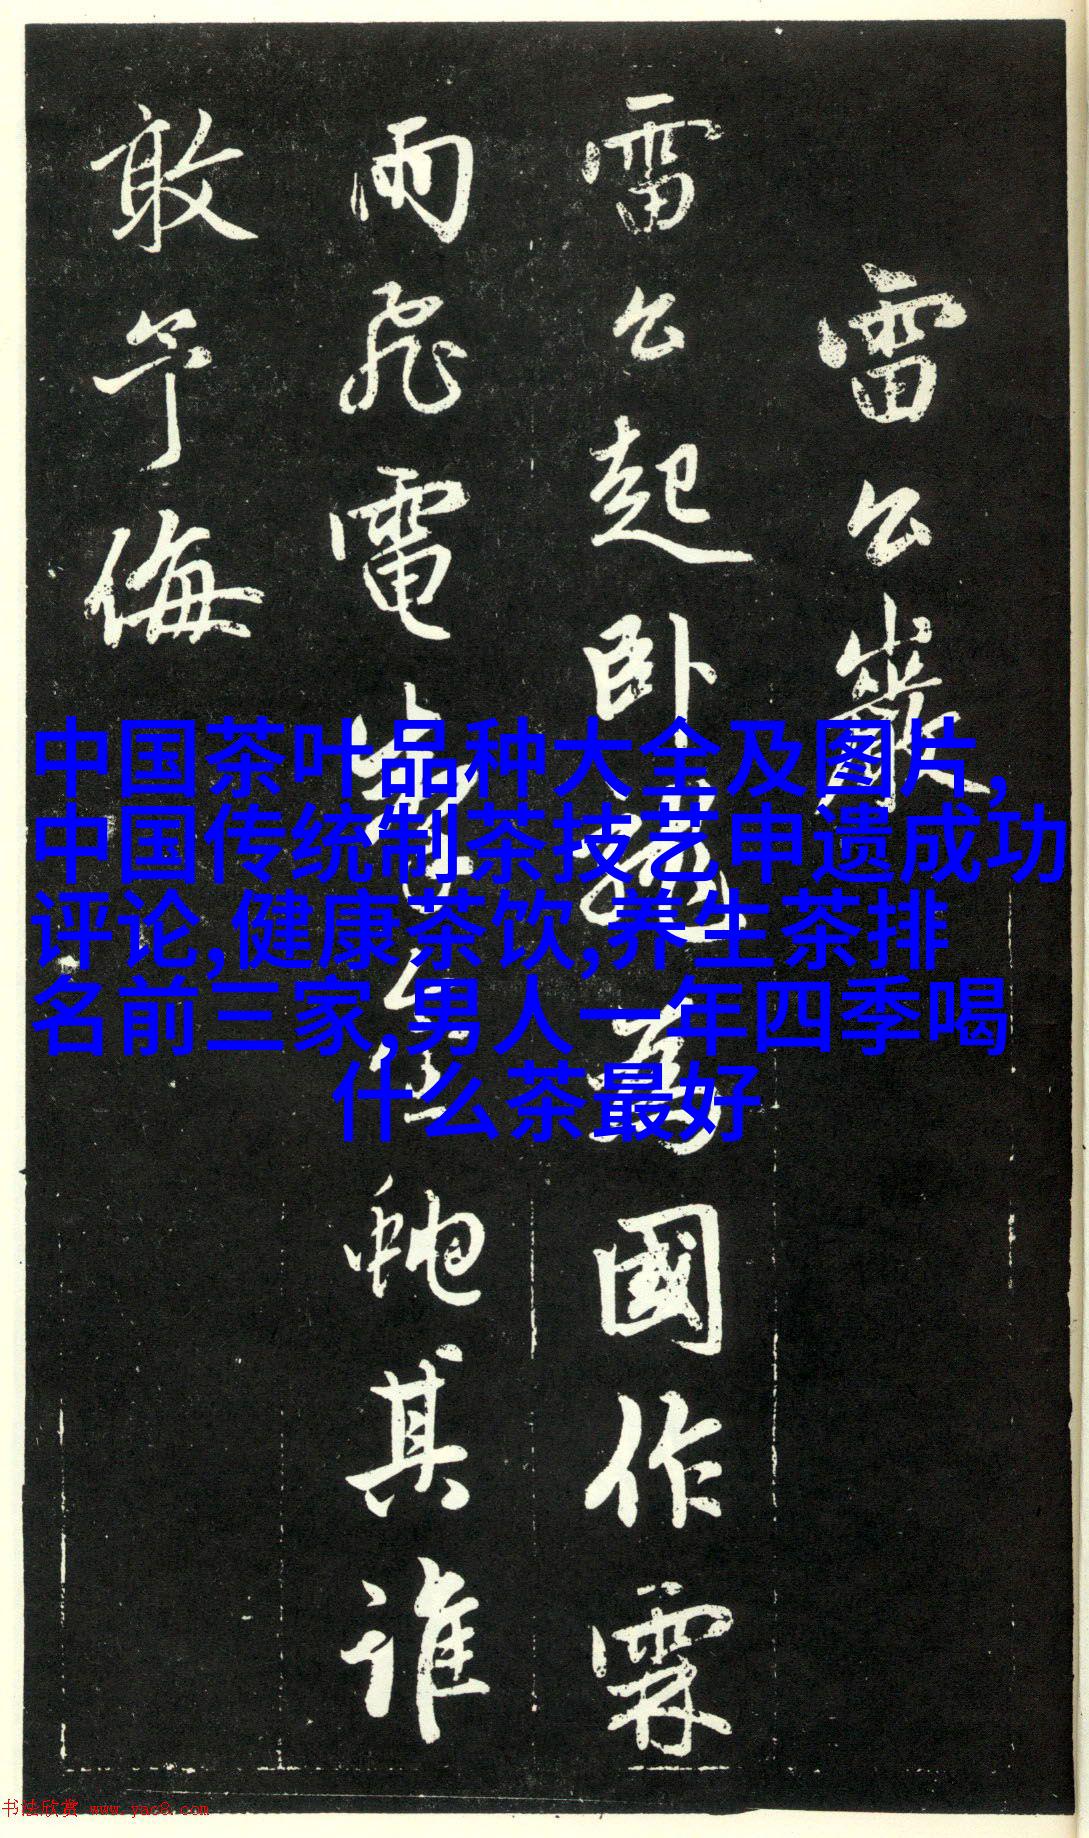 雷公
雷公起卧龍為國作霖
雨飛電掣金虵其誰
敢予侮
中国茶叶品种大全及图片,
中国传统制茶技艺申遗成功
评论,健康茶饮,养生茶排
名前三家,男人一年四季喝
什么茶最好
书法欣赏 www.yac8.com